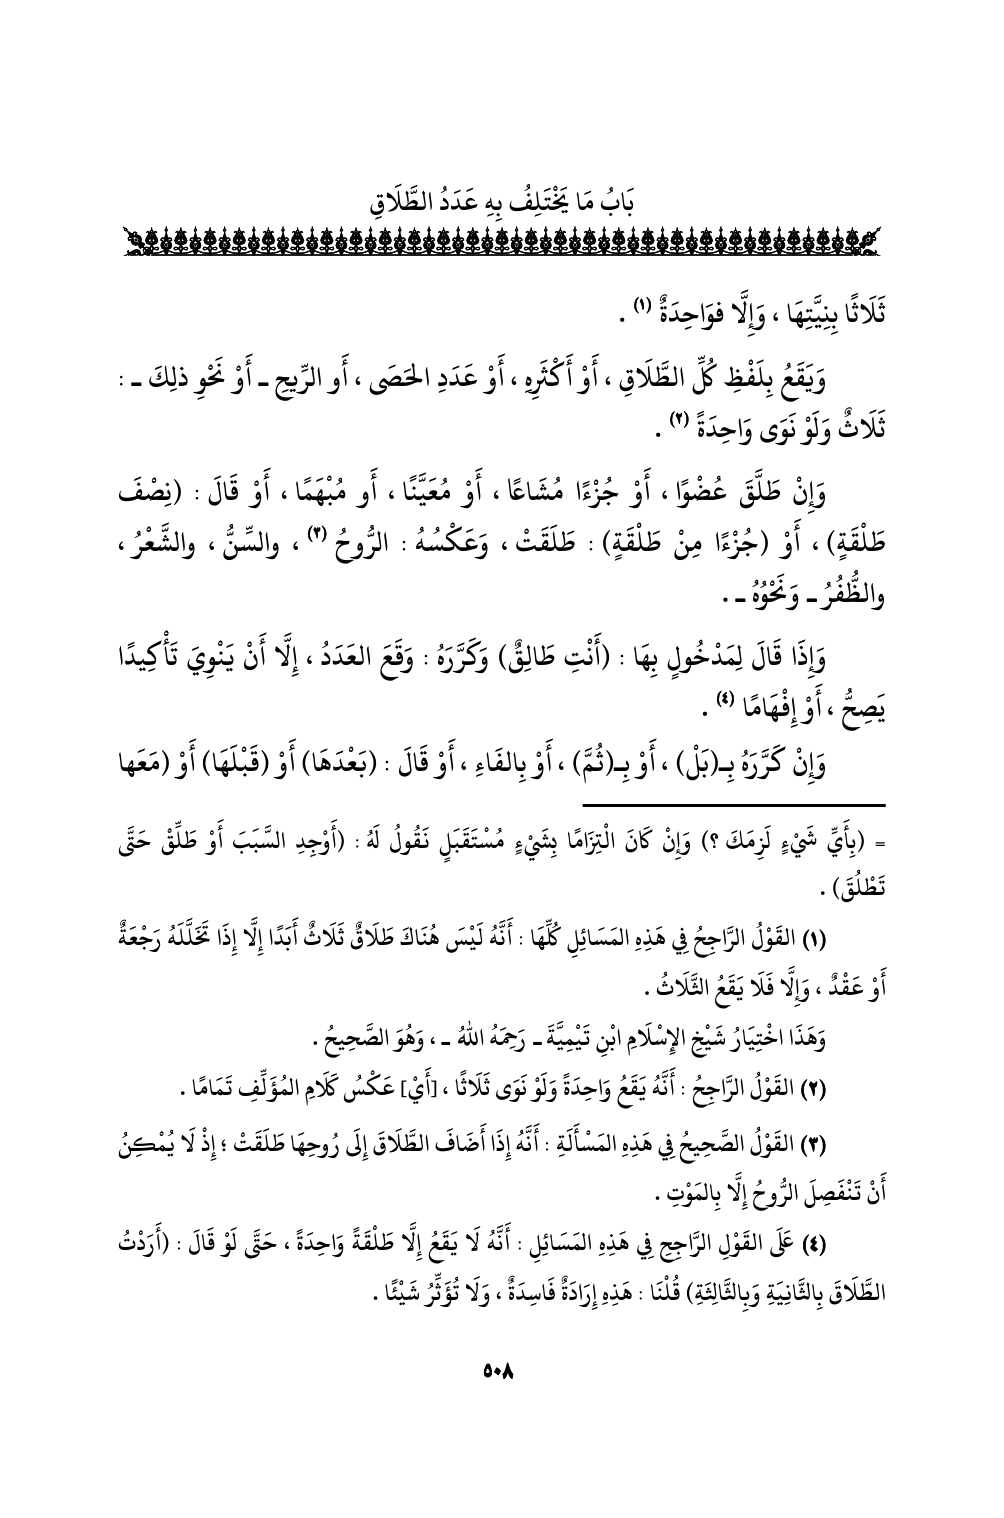 بَابُ مَا يَخْتَلِفُ بِهِ عَدَدُ الطَّلَاقِ
ثَلَاثًا بِنِيَّتِهَا ، وَإِلَّا فوَاحِدَةٌ (١) .
وَيَقَعُ بِلَفْظِ كُلِّ الطَّلَاقِ ، أَوْ أَكْثَرِهِ ، أَوْ عَدَدِ الحَصَى ، أَو الرِّيحِ ـ أَوْ نَحْوِ ذلِكَ ـ :
ثَلَاثٌ وَلَوْ نَوَى وَاحِدَةً (٢) .
وَإِنْ طَلَّقَ عُضْوًا ، أَوْ جُزْءًا مُشَاعًا ، أَوْ مُعَيَّنًا ، أَو مُبْهَمًا ، أَوْ قَالَ : (نِصْفَ
طَلْقَةٍ) ، أَوْ (جُزْءًا مِنْ طَلْقَةٍ) : طَلَقَتْ ، وَعَكْسُهُ : الرُّوحُ (٣) ، والسِّنُّ ، والشَّعْرُ ،
والظُّفُرُ ـ وَنَحْوُهُ ـ .
وَإِذَا قَالَ لِمَدْخُولٍ بِهَا : (أَنْتِ طَالِقٌ) وَكَرَّرَهُ : وَقَعَ العَدَدُ ، إِلَّا أَنْ يَنْوِيَ تَأْكِيدًا
يَصِحُّ ، أَوْ إِفْهَامًا (٤) .
وَإِنْ كَرَّرَهُ بِـ(بَلْ) ، أَوْ بِـ(ثُمَّ) ، أَوْ بِالفَاءِ ، أَوْ قَالَ : (بَعْدَهَا) أَوْ (قَبْلَهَا) أَوْ (مَعَها
= (بِأَيِّ شَيْءٍ لَزِمَكَ ؟) وَإِنْ كَانَ الْتِزَامًا بِشَيْءٍ مُسْتَقَبَلٍ نَقُولُ لَهُ : (أَوْجِدِ السَّبَبَ أَوْ طَلِّقْ حَتَّى
تَطْلُقَ) .
(١) القَوْلُ الرَّاجِحُ فِي هَذِهِ المَسَائِلِ كُلِّهَا : أَنَّهُ لَيْسَ هُنَاكَ طَلَاقٌ ثَلَاثٌ أَبَدًا إِلَّا إِذَا تَخَلَّلَهُ رَجْعَةٌ
أَوْ عَقْدٌ ، وَإِلَّا فَلَا يَقَعُ الثَّلَاثُ .
وَهَذَا اخْتِيَارُ شَيْخِ الإِسْلَامِ ابْنِ تَيْمِيَّةَ ـ رَحِمَهُ اللهُ ـ ، وَهُوَ الصَّحِيحُ .
(٢) القَوْلُ الرَّاجِحُ : أَنَّهُ يَقَعُ وَاحِدَةً وَلَوْ نَوَى ثَلَاثًا ، [أَيْ] عَكْسُ كَلَامِ المُؤَلِّفِ تَمَامًا .
(٣) القَوْلُ الصَّحِيحُ فِي هَذِهِ المَسْأَلَةِ : أَنَّهُ إِذَا أَضَافَ الطَّلَاقَ إِلَى رُوحِهَا طَلَقَتْ ؛ إِذْ لَا يُمْكِنُ
أَنْ تَنْفَصِلَ الرُّوحُ إِلَّا بِالمَوْتِ .
(٤) عَلَى القَوْلِ الرَّاجِحِ فِي هَذِهِ المَسَائِلِ : أَنَّهُ لَا يَقَعُ إِلَّا طَلْقَةً وَاحِدَةً ، حَتَّى لَوْ قَالَ : (أَرَدْتُ
الطَّلَاقَ بِالثَّانِيَةِ وَبِالثَّالِثَةِ) قُلْنَا : هَذِهِ إِرَادَةٌ فَاسِدَةٌ ، وَلَا تُؤَثِّرُ شَيْئًا .
٥٠٨